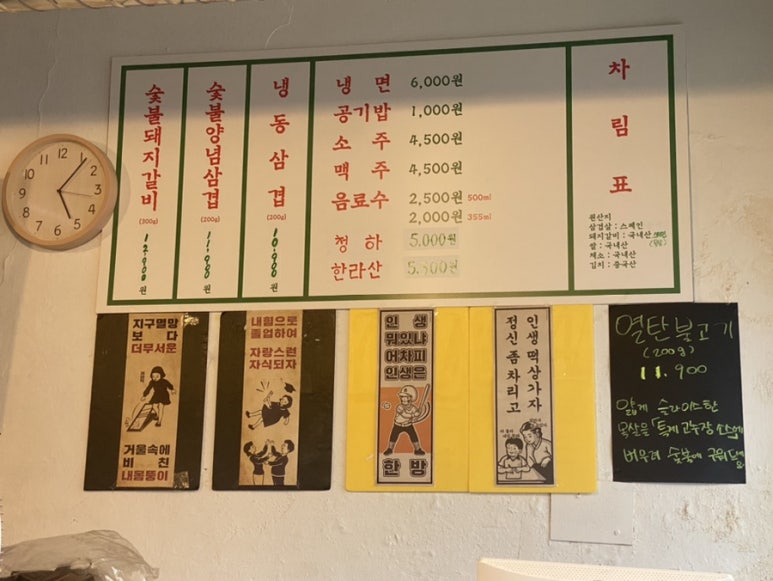 숯불돼지갈비
(300g)
12,900원
숯불양념삼겹
(200g)
11,900원
냉동삼겹
(200g)
10,900원
냉면 6,000원
공기밥 1,000원
소주 4,500원
맥주 4,500원
음료수 2,500원 500ml
2,000원 355ml
청하 5,000원
한라산 5,500원
차림표
원산지
삼겹살 : 스페인
돼지갈비 : 국내산
쌀 : 국내산
채소 : 국내산
김치 : 중국산
12
1
2
3
4
5
6
7
8
9
10
11
지구멸망
보다
더무서운
거울속에
비친
내몸뚱이
내힘으로
졸업하여
자랑스런
자식되자
인생
뭐있냐
어차피
인생은
한방
인생 떡상가자
정신 좀 차리고
열탄불고기
(200g)
11.900
얇게 슬라이스한
목살을 특제 간장 소스에
버무려 숯불에 구워드려요